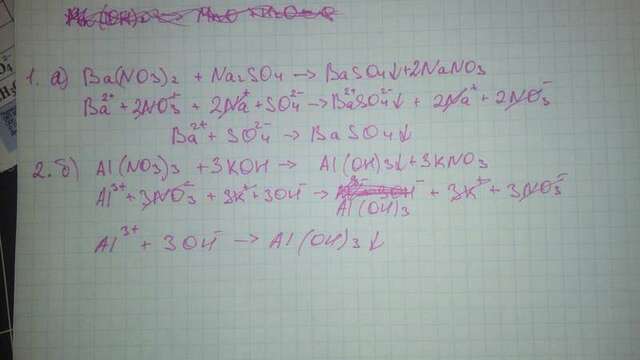 1. а) Ba(NO3)2 + Na2SO4 → BaSO4↓+2NaNO3
Ba²⁺ + 2NO3⁻ + 2Na⁺ + SO4²⁻ → Ba²⁺SO4²⁻↓ + 2Na⁺ + 2NO3⁻
Ba²⁺ + SO4²⁻ → BaSO4↓
2. б) Al(NO3)3 + 3KOH → Al(OH)3↓+3KNO3
Al³⁺ + 3NO3⁻ + 3K⁺ + 3OH⁻ → Al(OH)3 + 3K⁺ + 3NO3⁻
Al³⁺ + 3OH⁻ → Al(OH)3↓